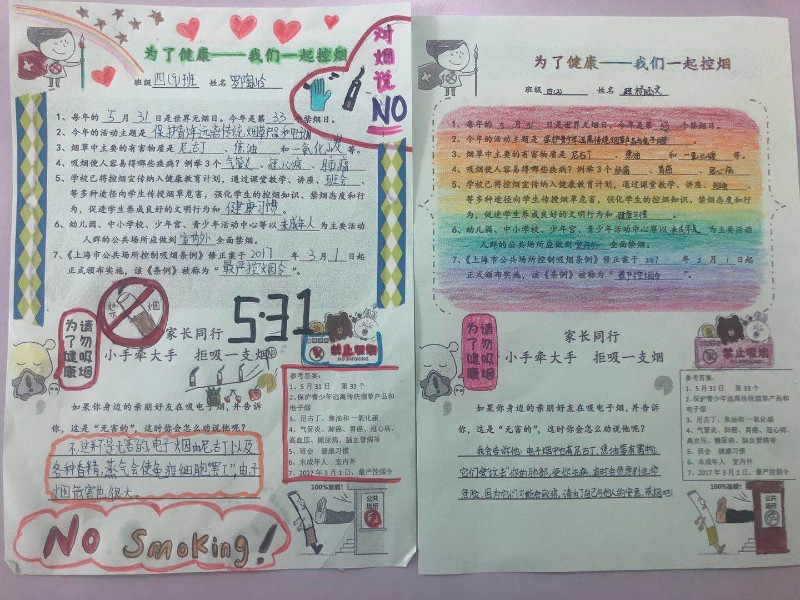 为了健康——我们一起控烟
对烟说
NO
班级 四(9)班 姓名
1、每年的 5 月 31 日是世界无烟日。今年是第 33 个禁烟日。
2、今年的活动主题是 保护青少年远离传统烟草产品和电子烟
3、烟草中主要的有害物质是 尼古丁、焦油 和 一氧化碳 等。
4、吸烟使人容易得哪些疾病？例举3个 气管炎、冠心病、肺癌
5、学校已将控烟宣传纳入健康教育计划，通过课堂教学、讲座、班会
等多种途径向学生传授烟草危害，强化学生的控烟知识、禁烟态度和行
为，促进学生养成良好的文明行为和 健康习惯。
6、幼儿园、中小学校、少年宫、青少年活动中心等以 未成年人 为主要活动
人群的公共场所应做到 室内外 全面禁烟。
7、《上海市公共场所控制吸烟条例》修正案于 2017 年 3 月 1 日起
正式颁布实施，该《条例》被称为“ 最严控烟令 ”
禁 烟
5·31
请勿吸烟
为了健康
家长同行
小手牵大手 拒吸一支烟
禁止吸烟
如果你身边的亲朋好友在吸电子烟，并告诉
你，这是“无害的”，这时你会怎么劝说他呢？
不，这并不是无害的，电子烟由尼古丁以及
各种香精，蒸气会使免疫细胞“罢工”，电子
烟危害也很大。
参考答案：
1、5月31日 第33个
2、保护青少年远离传统烟草产品和
电子烟
3、尼古丁、焦油和一氧化碳
4、气管炎、肺癌、胃癌、冠心病、
高血压、糖尿病、脑血管病等
5、班会 健康习惯
6、未成年人 室内外
7、2017年3月1日，最严控烟令
100%禁烟！
公共场所
No Smoking!
为了健康——我们一起控烟
班级 四(2) 姓名
1、每年的 5 月 31 日是世界无烟日。今年是第 33 个禁烟日。
2、今年的活动主题是 保护青少年远离传统烟草产品与电子烟
3、烟草中主要的有害物质是 尼古丁、焦油 和 一氧化碳 等。
4、吸烟使人容易得哪些疾病？例举3个 肺癌、胃癌、冠心病
5、学校已将控烟宣传纳入健康教育计划，通过课堂教学、讲座、班会
等多种途径向学生传授烟草危害，强化学生的控烟知识、禁烟态度和行
为，促进学生养成良好的文明行为和 健康习惯。
6、幼儿园、中小学校、少年宫、青少年活动中心等以 未成年人 为主要活动
人群的公共场所应做到 室内外 全面禁烟。
7、《上海市公共场所控制吸烟条例》修正案于 2017 年 3 月 1 日起
正式颁布实施，该《条例》被称为“ 最严控烟令 ”
请勿吸烟
为了健康
家长同行
小手牵大手 拒吸一支烟
禁止吸烟
如果你身边的亲朋好友在吸电子烟，并告诉
你，这是“无害的”，这时你会怎么劝说他呢？
我会告诉他：电子烟中也有尼古丁、焦油等有害物，
它们会

参考答案：
1、5月31日 第33个
2、保护青少年远离传统烟草产品和
电子烟
3、尼古丁、焦油和一氧化碳
4、气管炎、肺癌、胃癌、冠心病、
高血压、糖尿病、脑血管病等
5、班会 健康习惯
6、未成年人 室内外
7、2017年3月1日，最严控烟令
100%禁烟！
公共场所